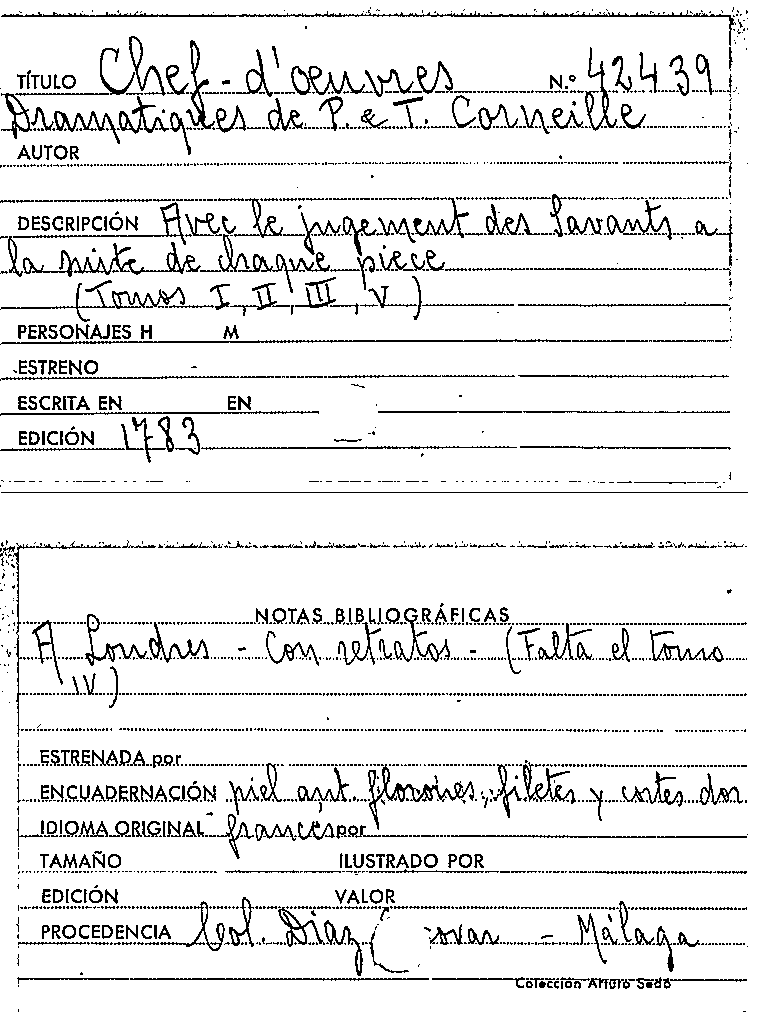 TÍTULO Chef-d'oeuvres N.º 42439
Dramatiques de P. & T. Corneille
AUTOR
DESCRIPCIÓN Avec le jugement des Savants a
la suite de chaque piece
(Tomos I, II, III, V)
PERSONAJES H M
ESTRENO
ESCRITA EN EN
EDICIÓN 1783
NOTAS BIBLIOGRÁFICAS
A Londres - Con retratos - (Falta el tomo
IV)
ESTRENADA por
ENCUADERNACIÓN piel ant. florones, filetes y cortes dor.
IDIOMA ORIGINAL francés por
TAMAÑO ILUSTRADO POR
EDICIÓN VALOR
PROCEDENCIA Col. Díaz - Málaga
Colección Arturo Sedó